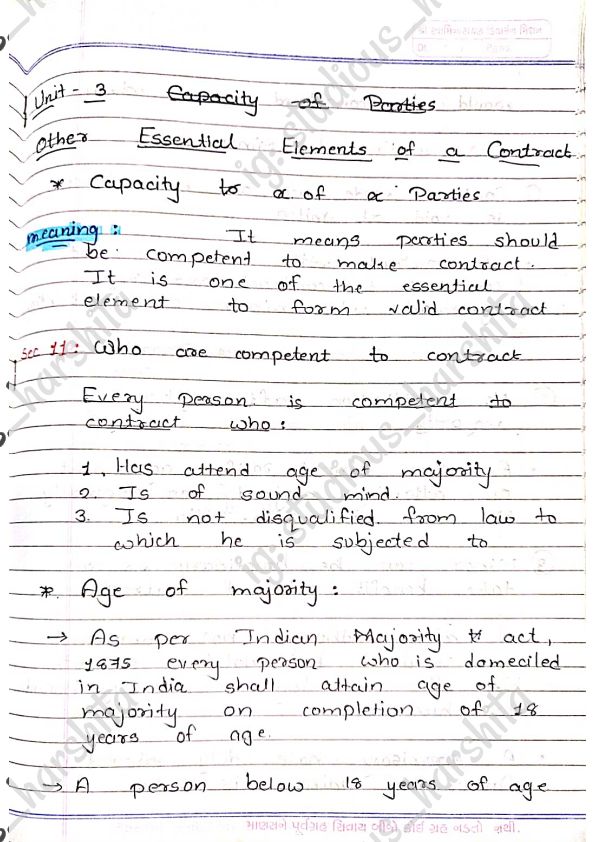 Unit - 3 Capacity of Parties
Other Essential Elements of a Contract
* Capacity to of Parties
meaning : It means parties should
be competent to make contract.
It is one of the essential
element to form valid contract
Sec 11: Who are competent to contract
Every person is competent to
contract who :
1. Has attend age of majority
2. Is of sound mind.
3. Is not disqualified from law to
which he is subjected to
* Age of majority :
→ As per Indian Majority act,
1875 every person who is domeciled
in India shall attain age of
majority on completion of 18
years of age.
→ A person below 18 years of age
ig: studious_harshita